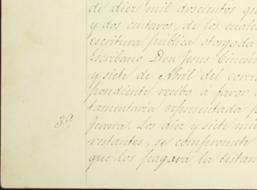 de diez mil doscientos
y dos centavos, de los cuales
escritura pública otorgada
Escribano Don Jesus
y siete de Abril del corri
pondiente recibo a favor
tamentaria representada p
39.
Los diez y siete mil
restantes, se compromete
que los pagará la testam